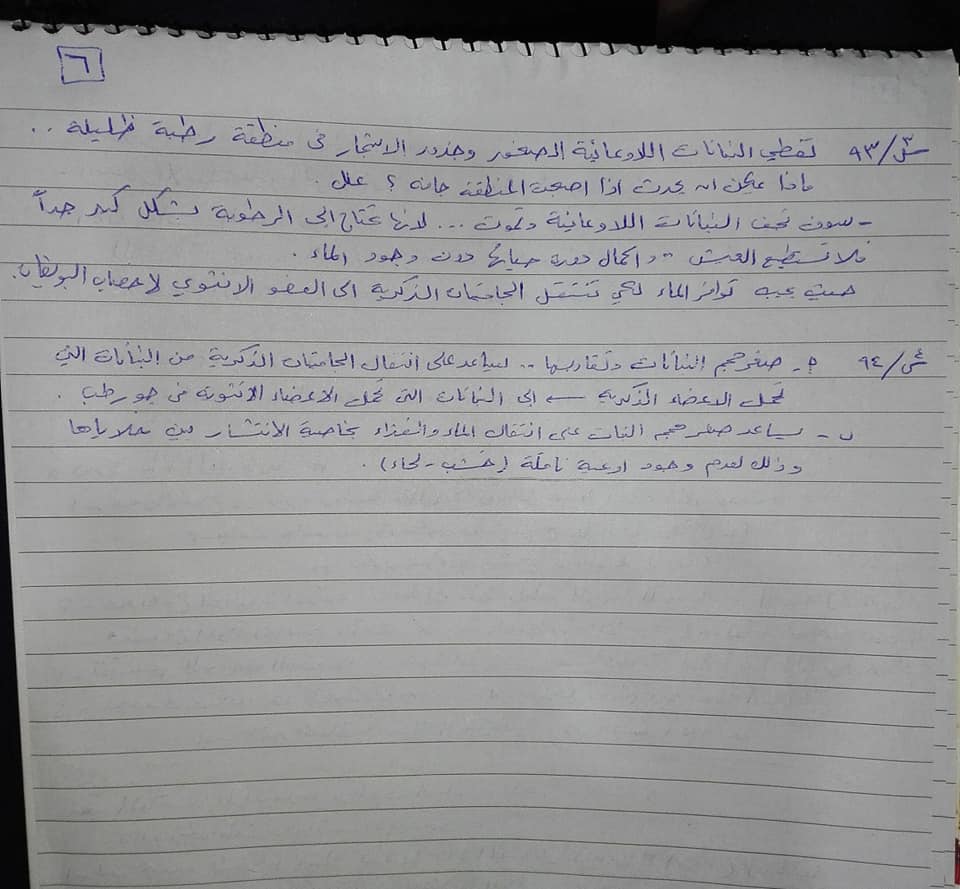 ٦
س/٩٣ تغطي النباتات اللاوعائية الصخور وجذور الاشجار في منطقة رطبة ظليلة ..
ماذا يمكن ان يحدث اذا اصبحت المنطقة جافه ؟ علل .
- سوف تجف النباتات اللاوعائية وتموت ... لانها تحتاج الى الرطوبة بشكل كبير جداً
فلا تستطيع العيش .. واكمال دورة حياتها دون وجود الماء .
حيث يجب توافر الماء لكي تنتقل الجاميتات الذكرية الى العضو الانثوي لاخصاب البويضات.
س/٩٤ أ- صغر حجم النباتات وتقاربها .. يساعد على انتقال الجاميتات الذكرية من النباتات التي
تحمل الاعضاء الذكرية ← الى النباتات التي تحمل الاعضاء الانثوية في جو رطب .
ب - يساعد صغر حجم النبات على انتقال الماء والغذاء بخاصية الانتشار بين خلاياها
وذلك لعدم وجود اوعية ناقلة (خشب - لحاء) .